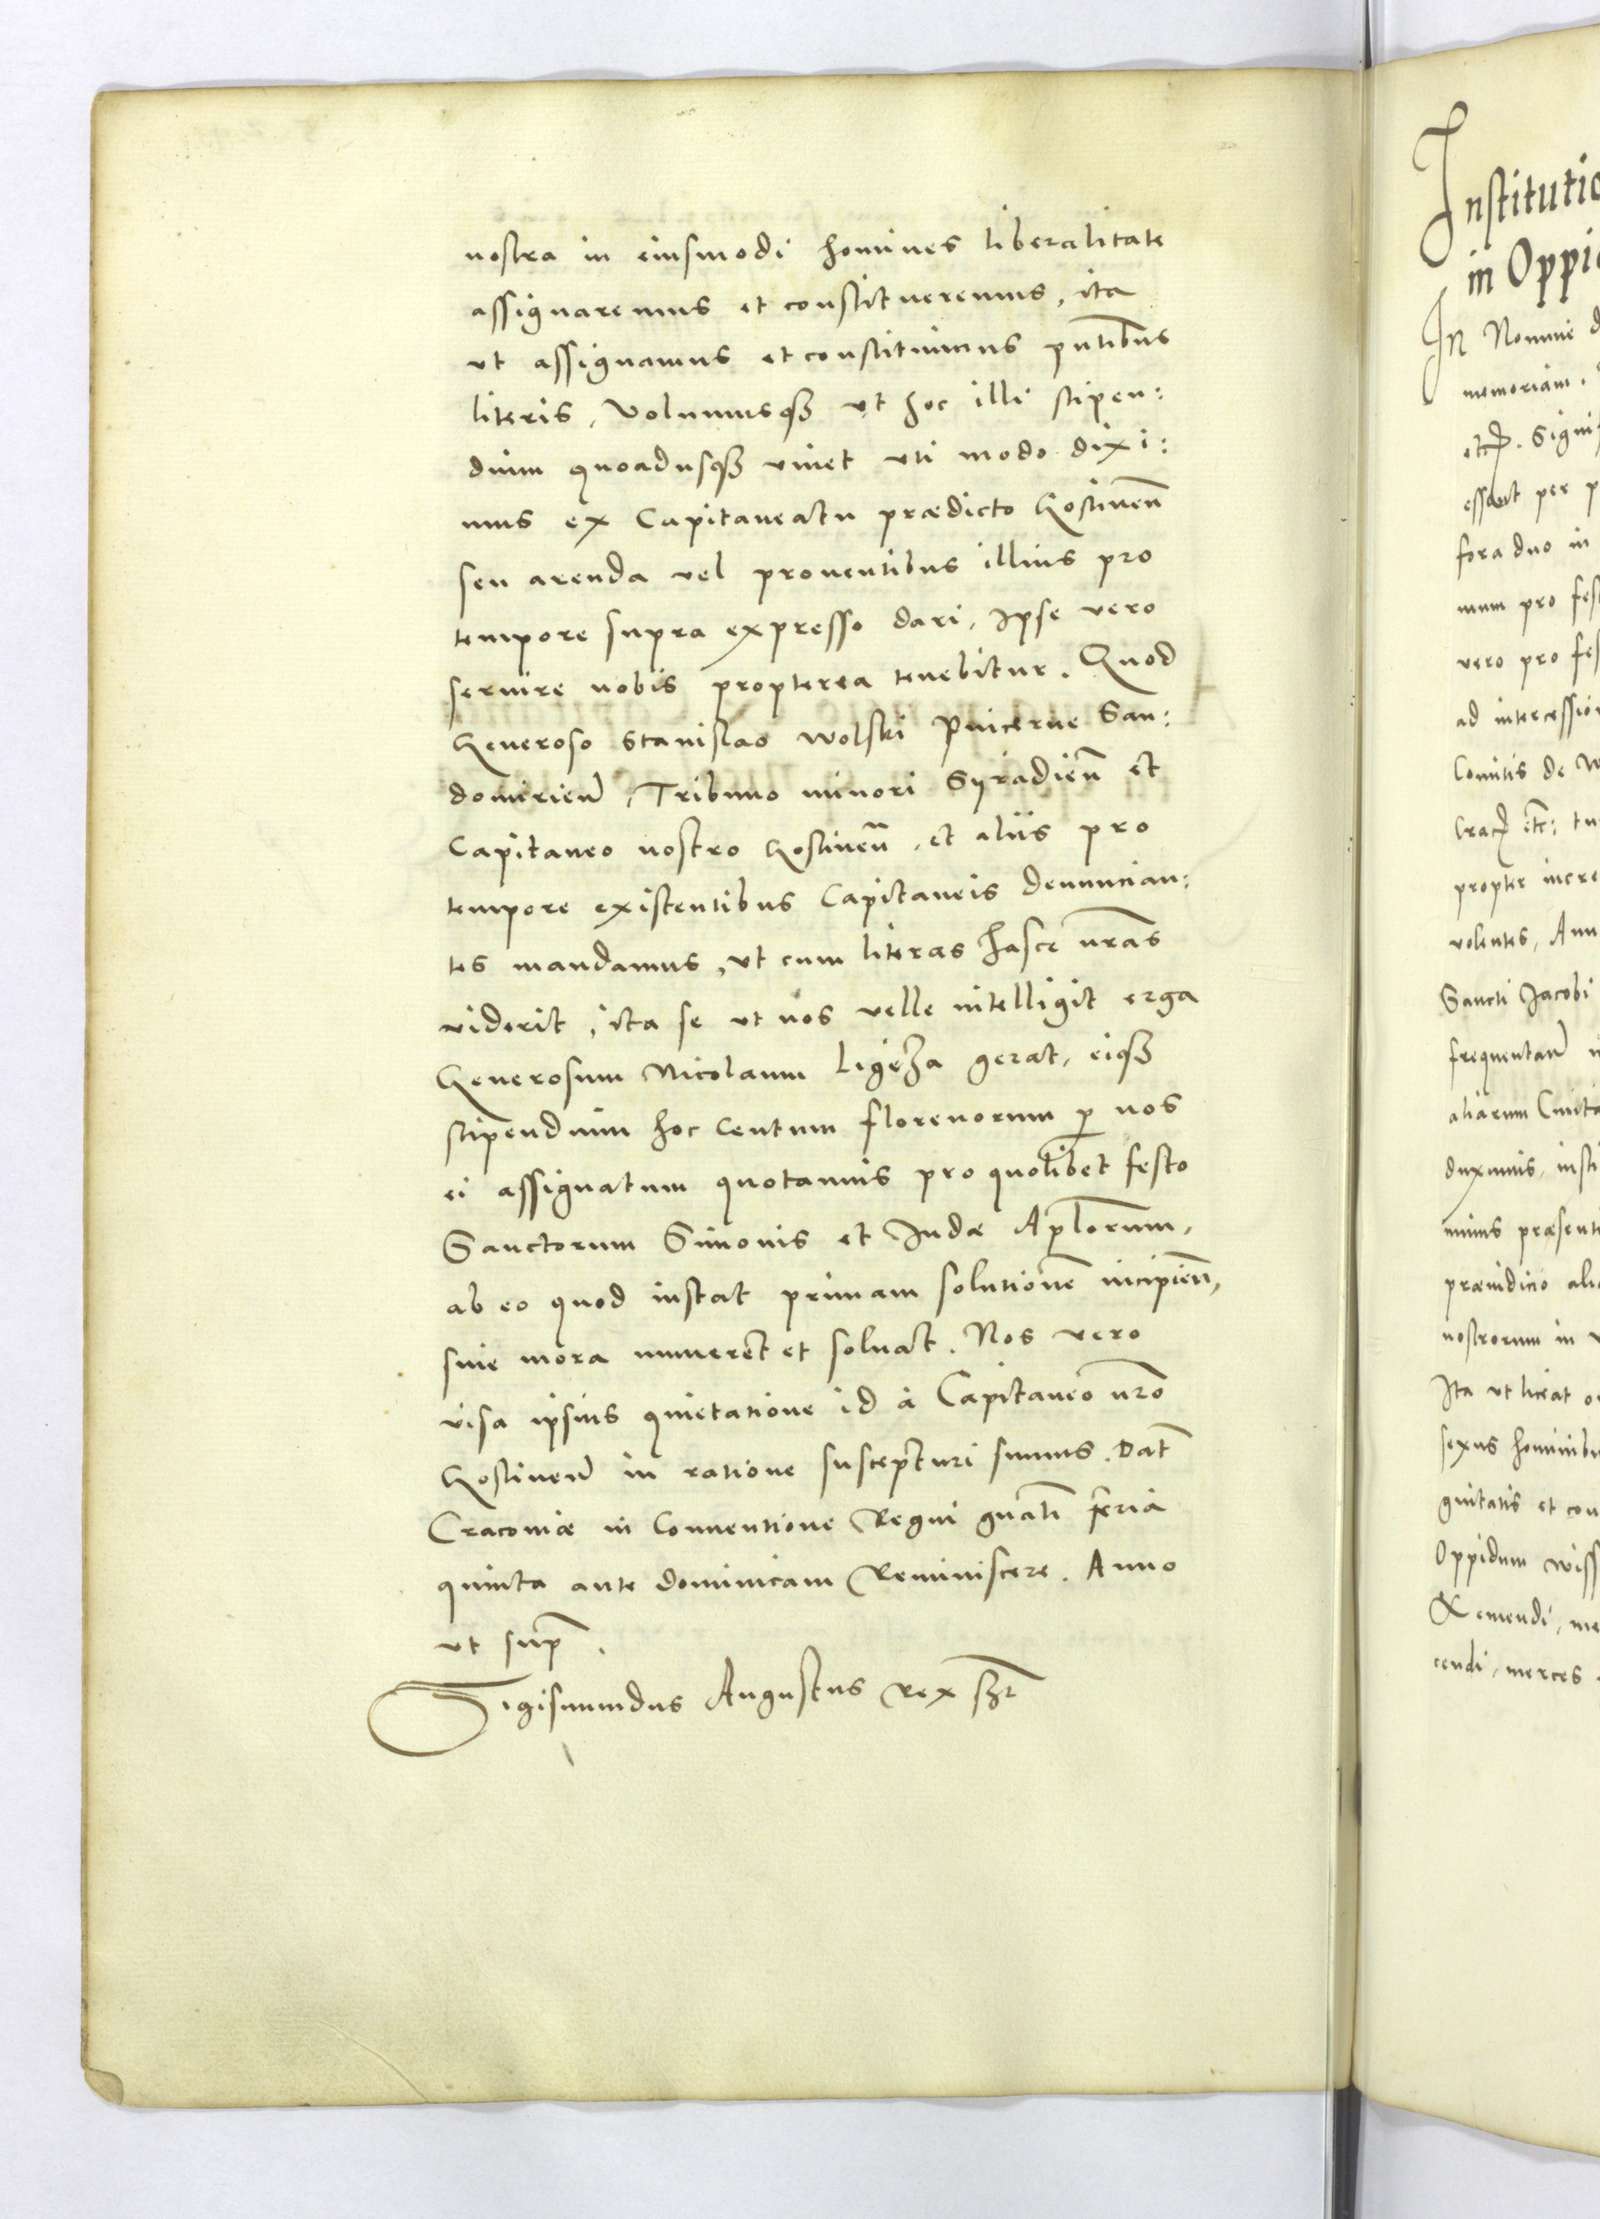 nostra in eiusmodi homines liberalitate
assignaremus et constitueremus, ita
ut assignamus et constituimus pn̄tibus
literis, Volumusqȝ ut hoc illi stipen:
dium quoadusqȝ viuet uti modo dixi:
mus ex Capitaneatu prædicto Gostinen̄
seu arenda vel prouentibus illius pro
tempore supra expresso dari, Ipse vero
seruire nobis propterea tenebitur. Quod
Generoso Stanislao Wolski Pincerne San:
domirien̄, Tribuno minori Syradien̄ et
Capitaneo nostro Gostinen̄, et aliis pro
tempore existentibus Capitaneis denuncian:
tes mandamus, ut cum literas hasce nr̄as
viderit, ita se ut nos velle intelligit erga
Generosum Nicolaum Ligęza gerat, eiqȝ
stipendium hoc Centum florenorum p̱ nos
ei assignatum quotannis pro quolibet festo
Sanctorum Simonis et Iudæ Apl̄orum,
ab eo quod instat primam solutionē incipien̄,
sine mora numeret et soluat. Nos vero
visa ipsius quietatione id à Capitaneo nr̄o
Gostinen̄ in ratione suscepturi sumus. Dat̄
Cracouiæ in Conuentione Regni gn̄ali feria
quinta ante dominicam Reminiscere. Anno
ut sup̄.
Sigismundus Augustus Rex sst
Institutio
in Oppi
In Nomine d
memoriam.
etc. Signif
essent per p
fora duo in
mum pro fes
vero pro fes
ad intercession
Comitis de W
Crac̄ etc: tu
propter incre
volentes, Ann
Sancti Jacobi
frequentan̄
aliarum Ciuita
duximus, insti
mimus præsenti
præiudicio ali
nostrorum in
Ita ut liceat o
sexus hominibu
gnitatis et con
Oppidum Wiss
& emendi, me
cendi, merces